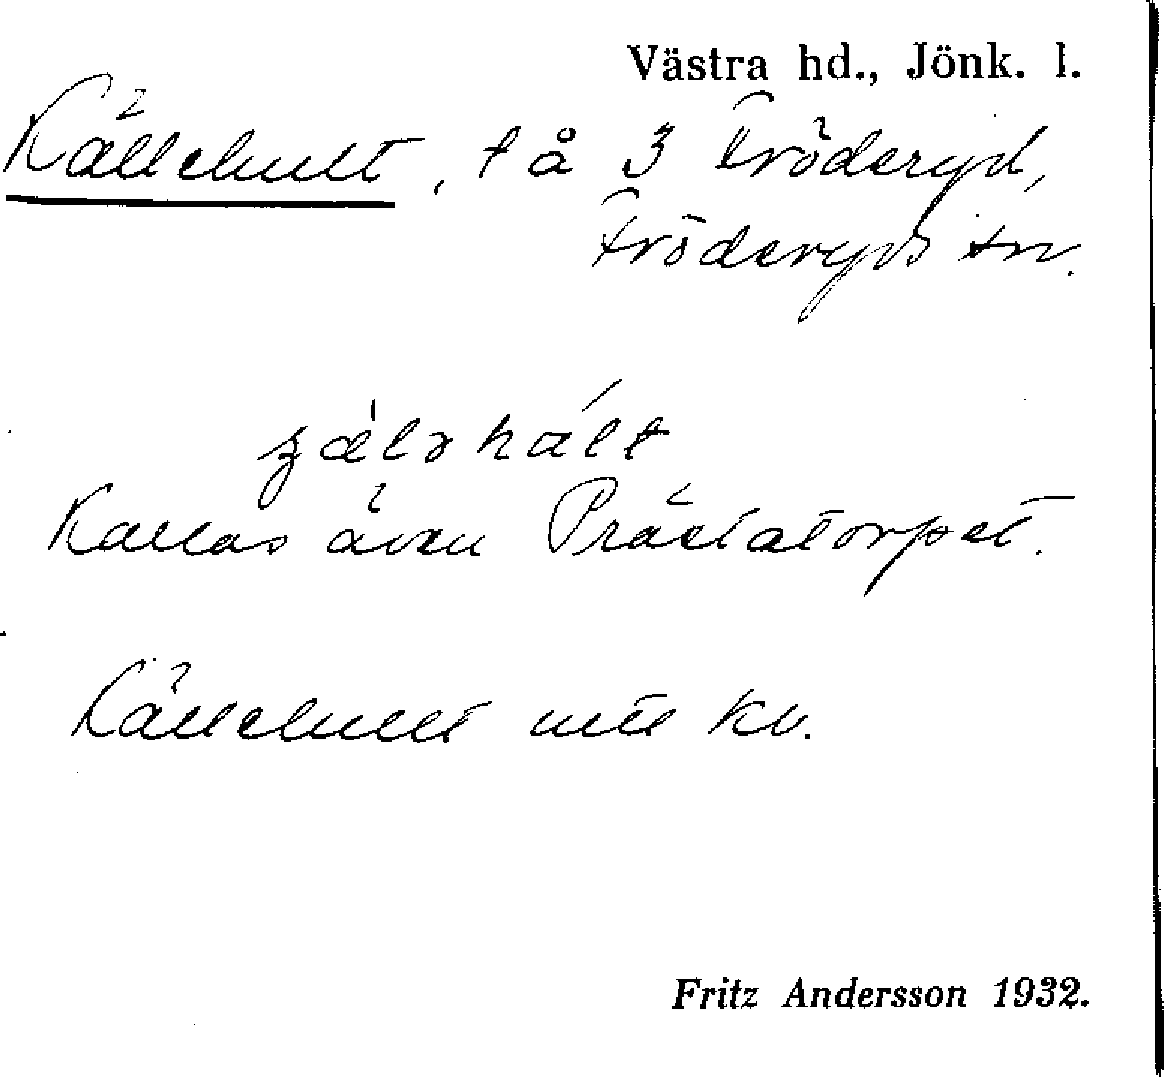 Västra hd., Jönk. l.
Källehult, t å 3 Fröderyd,
Fröderyds sn.
Kallas även Prästatorpet.
Källehult utk kv.
Fritz Andersson 1932.